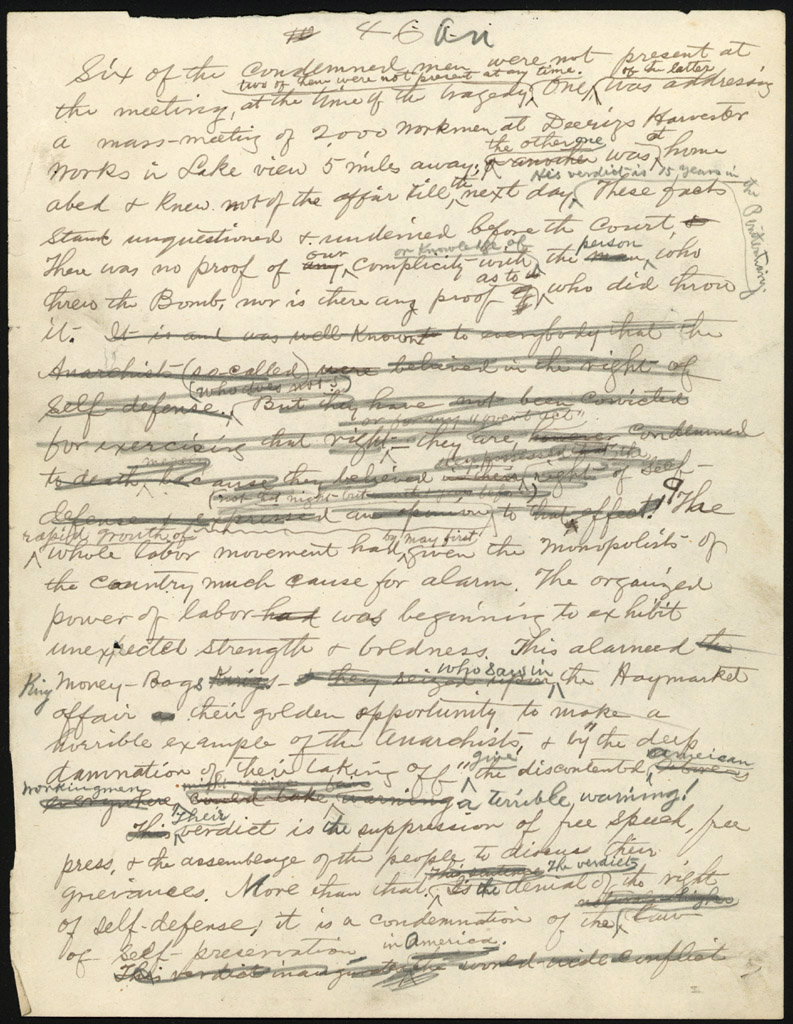 46 a-u
Six of the condemned men were not present at
two of them were not present at any time. of the latter
the meeting, at the time of the tragedy, One, was addressing
a mass-meeting of 2,000 workmen at Deerings Harvester
the other one at
works in Lake view 5 miles away, & another was home
His verdict is 15 years in the Penitentiary.
abed & knew not of the affair till the next day. These facts
stand unquestioned & undenied before the Court, &
our or knowledge of person
There was no proof of any complicity with the man, who
as to
threw the Bomb, nor is there any proof of who did throw
it. It is and was well known to everybody that the
Anarchists (so-called) were believed in the right of
(who does not?)
self-defense. But they have not been convicted
or for any "overt act"
for exercising that right – they are, however condemned
merely
to death, because they believed in their right of self-
defense & expressed an opinion to that effect! The
rapid growth of by may first
whole labor movement had given the Monopolists of
the country much cause for alarm. The organized
power of labor had was beginning to exhibit
unexpected strength & boldness. This alarmed the
who saw in
King Money-Bags Kings – & they seized upon the Haymarket
affair as their golden opportunity to make a
horrible example of the Anarchists, & by "the deep
give American
damnation of their taking off" the discontented,
workingmen
everywhere, could take warning a terrible warning!
Their
This verdict is the suppression of free speech, free
press, & the assemblage of the people to discuss their
This sentence The verdict
grievances. More than that, Is the denial of the right
natural
of self-defense; it is a condemnation of the law
of self-preservation in America.
This verdict inaugurates the world-wide conflict